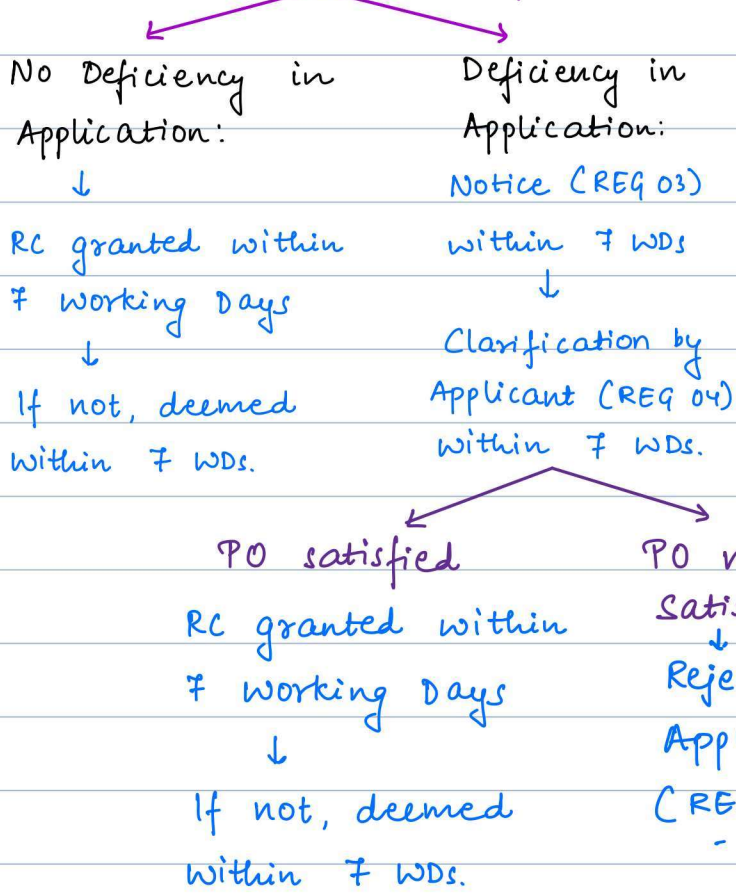 No Deficiency in
Application:
↓
RC granted within
7 working Days
↓
If not, deemed
within 7 WDs.
Deficiency in
Application:
Notice (REG 03)
within 7 WDs
↓
Clarification by
Applicant (REG 04)
within 7 WDs.
PO satisfied
RC granted within
7 working Days
↓
If not, deemed
within 7 WDs.
PO
↓